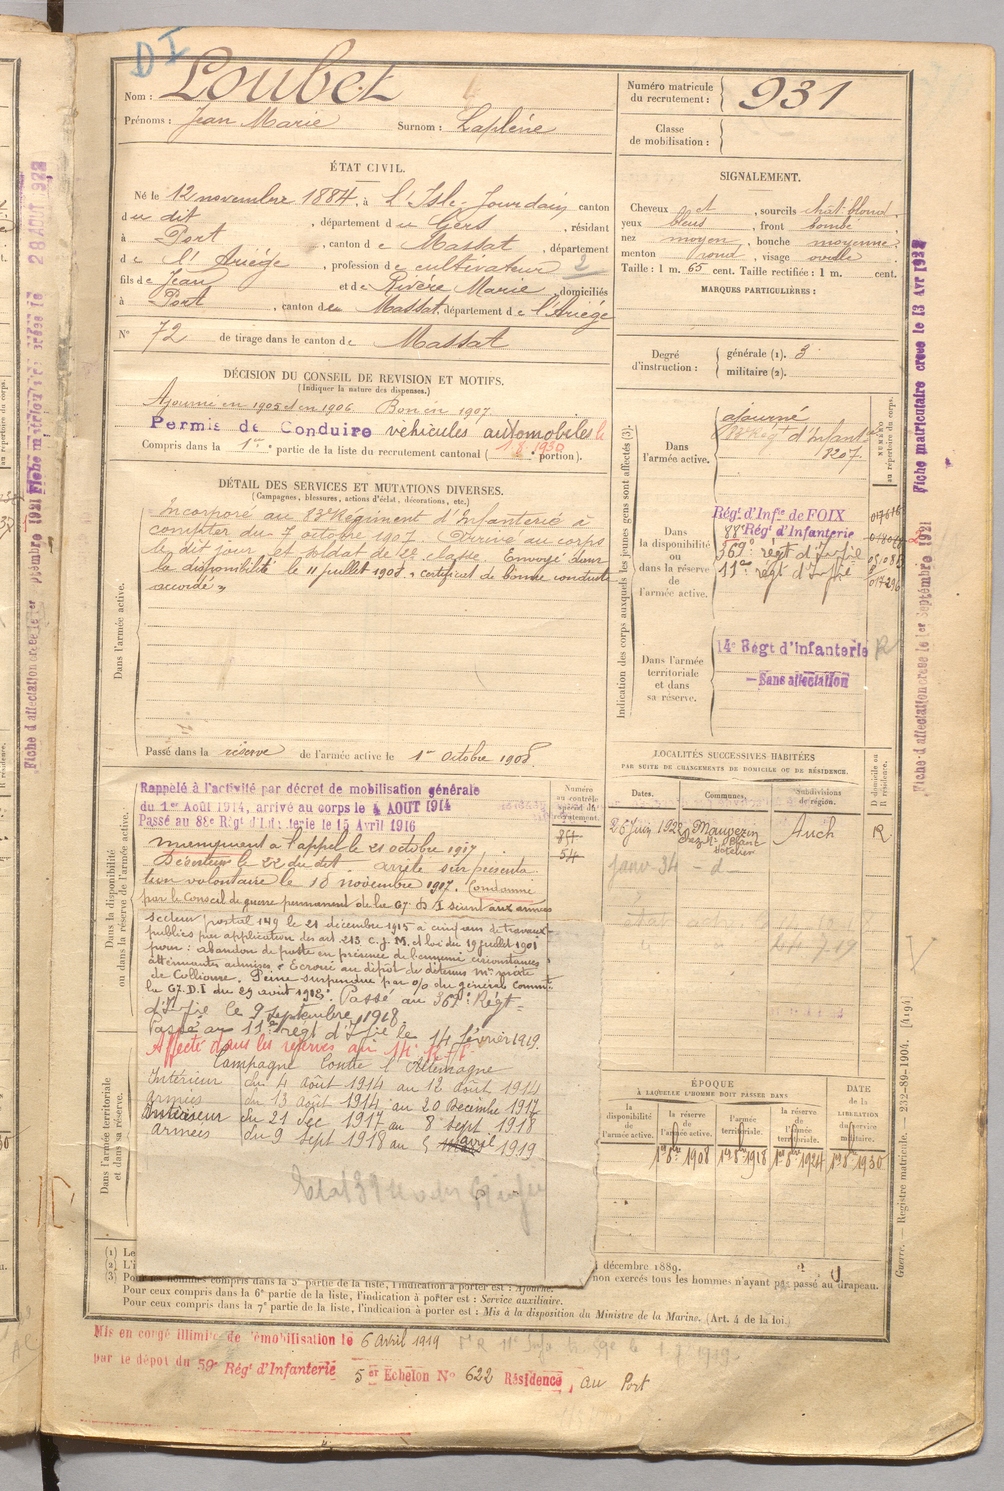 D I
Nom : Loubet
Prénoms : Jean Marie Surnom : Laplène
ÉTAT CIVIL.
Né le 12 novembre 1884, à L'Isle-Jourdain canton
du dit , département du Gers , résidant
à Port , canton de Massat , département
de l'Ariège , profession de cultivateur 2
fils de Jean et de Rivère Marie , domiciliés
à Port , canton de Massat, département de l'Ariège
N° 72 de tirage dans le canton de Massat
DÉCISION DU CONSEIL DE REVISION ET MOTIFS.
(Indiquer la nature des dispenses.)
Ajourné en 1905 et en 1906 Bon en 1907.
Permis de Conduire véhicules automobiles le
Compris dans la 1re partie de la liste du recrutement cantonal ( portion).
DÉTAIL DES SERVICES ET MUTATIONS DIVERSES.
(Campagnes, blessures, actions d'éclat, décorations, etc.)
Dans l'armée active.
Incorporé au 83e Régiment d'Infanterie à
compter du 7 octobre 1907. Arrivé au corps
le dit jour et soldat de 2e classe. Envoyé dans
la disponibilité le 11 juillet 1908. « certificat de bonne conduite
accordé »
Passé dans la réserve de l'armée active le 1er Octobre 1908.
Dans la disponibilité ou dans la réserve de l'armée active.
Rappelé à l'activité par décret de mobilisation générale
du 1er Août 1914, arrivé au corps le 4 AOUT 1914
Passé au 88e Régt d'Infanterie le 15 Avril 1916
manquant à l'appel le 21 octobre 1917
Déserteur le 22 du dit arrêté sur présenta
tion volontaire le 18 novembre 1917. Condamné
par le Conseil de guerre permanent de la 67e D I séant aux armées
secteur postal 149 le 21 décembre 1915 à cinq ans de travaux
publics par application des art 213 C. J. M. et loi du 19 juillet 1901
pour : abandon de poste en présence de l'ennemi circonstances
atténuantes admises. Écroué au dépôt de détenus mres
de Collioure. Peine suspendue par o/o du général Commt
la 67. D.I du 29 août 1918. Passé au 367e Régt
d'Infie le 9 Septembre 1918.
Passé au 11e régt d'Infie le 14 février 1919.
Affecté dans les réserves au 14e R.I.
Campagne Contre l'Allemagne
Intérieur du 4 août 1914 au 12 août 1914
armées du 13 août 1914 au 20 Décembre 1917
Intérieur du 21 Déc 1917 au 8 Sept 1918
armées du 9 Sept 1918 au 5 avril 1919
Dans l'armée territoriale et dans sa réserve.
Numéro matricule
du recrutement : 931
Classe
de mobilisation :
SIGNALEMENT.
Cheveux et , sourcils chât. blond,
yeux bleus , front bombé
nez moyen , bouche moyenne
menton rond , visage ovale
Taille : 1 m. 65 cent. Taille rectifiée : 1 m. cent.
MARQUES PARTICULIÈRES :
Degré
d'instruction :
générale (1). 3
militaire (2).
Indication des corps auxquels les jeunes gens sont affectés (3).
NUMÉRO au répertoire du corps.
Dans
l'armée active.
ajourné
83e Régt d'Infant
8207.
Dans
la disponibilité
ou
dans la réserve
de
l'armée active.
Régt d'Infie de FOIX
88e Régt d'Infanterie
367e régt d'Infie
11e régt d'Infie
017296
Dans l'armée
territoriale
et dans
sa réserve.
14e Régt d'Infanterie R
— Sans affectation
LOCALITÉS SUCCESSIVES HABITÉES
PAR SUITE DE CHANGEMENTS DE DOMICILE OU DE RÉSIDENCE.
Dates. Communes. Subdivisions
de région.
D domicile ou
R résidence.
Numéro
au contrôle
spécial du
recrutement.
851
54
26 Juin 1928 Mauvezin Auch R
Hôtelier
janv. 34 — d —
ÉPOQUE
À LAQUELLE L'HOMME DOIT PASSER DANS
la
disponibilité
de
l'armée active.
la réserve
de
l'armée active.
l'armée
territoriale.
la réserve
de
l'armée
territoriale.
DATE
de la
LIBÉRATION
du service
militaire.
1er 8bre 1908 1er 8bre 1918 1er 8bre 1924 1er 8bre 1930
(1) Le
(2) L'i
décembre 1889.
(3) Pour les hommes compris dans la 5e partie de la liste, l'indication à porter est : Ajourné.
non exercés tous les hommes n'ayant pas passé au drapeau.
Pour ceux compris dans la 6e partie de la liste, l'indication à porter est : Service auxiliaire.
Pour ceux compris dans la 7e partie de la liste, l'indication à porter est : Mis à la disposition du Ministre de la Marine. (Art. 4 de la loi.)
Guerre. — Registre matricule. — 232-89-1904. [4194]
Mis en congé illimité de démobilisation le 6 avril 1919
par le dépôt du 59e Régt d'Infanterie 5e Echelon N° 622 Résidence, au Port
Fiche matriculaire créée le 13 Avr 1922
Fiche d'affectation créée le 1er Septembre 1921